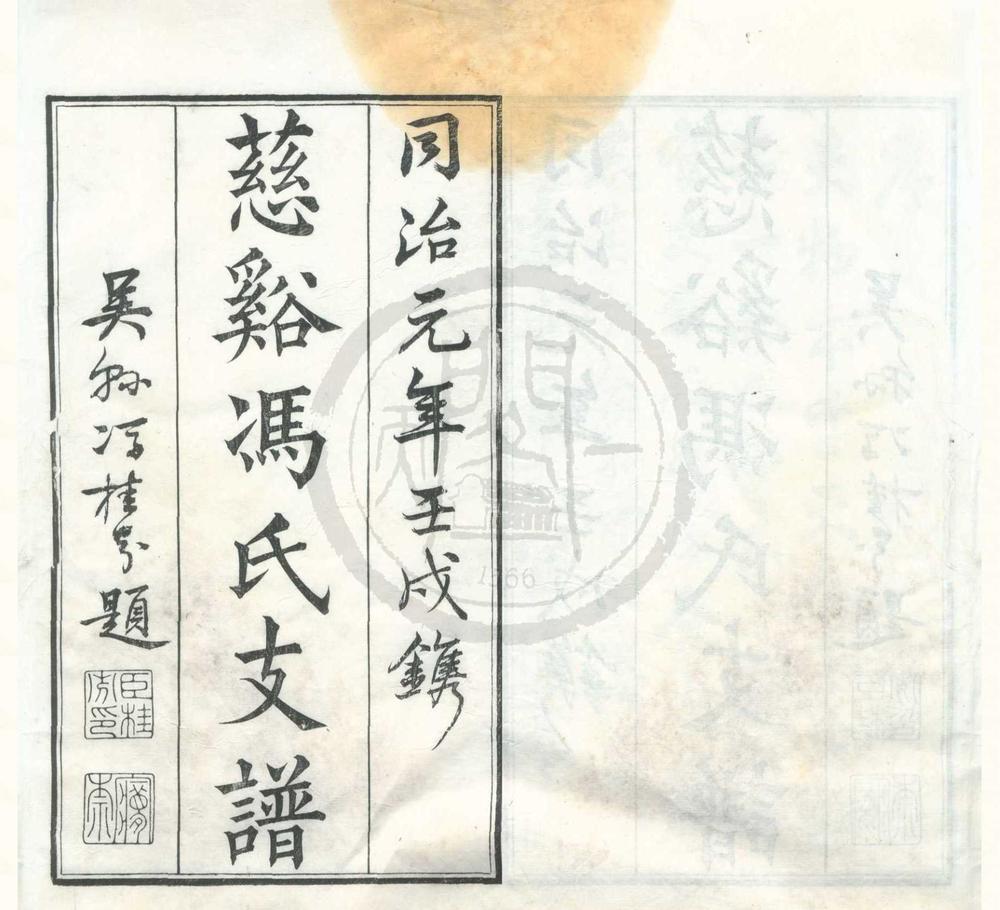 同治元年壬戌鐫
慈谿馮氏支譜
吳縣馮桂芬題
臣桂芬印
1566